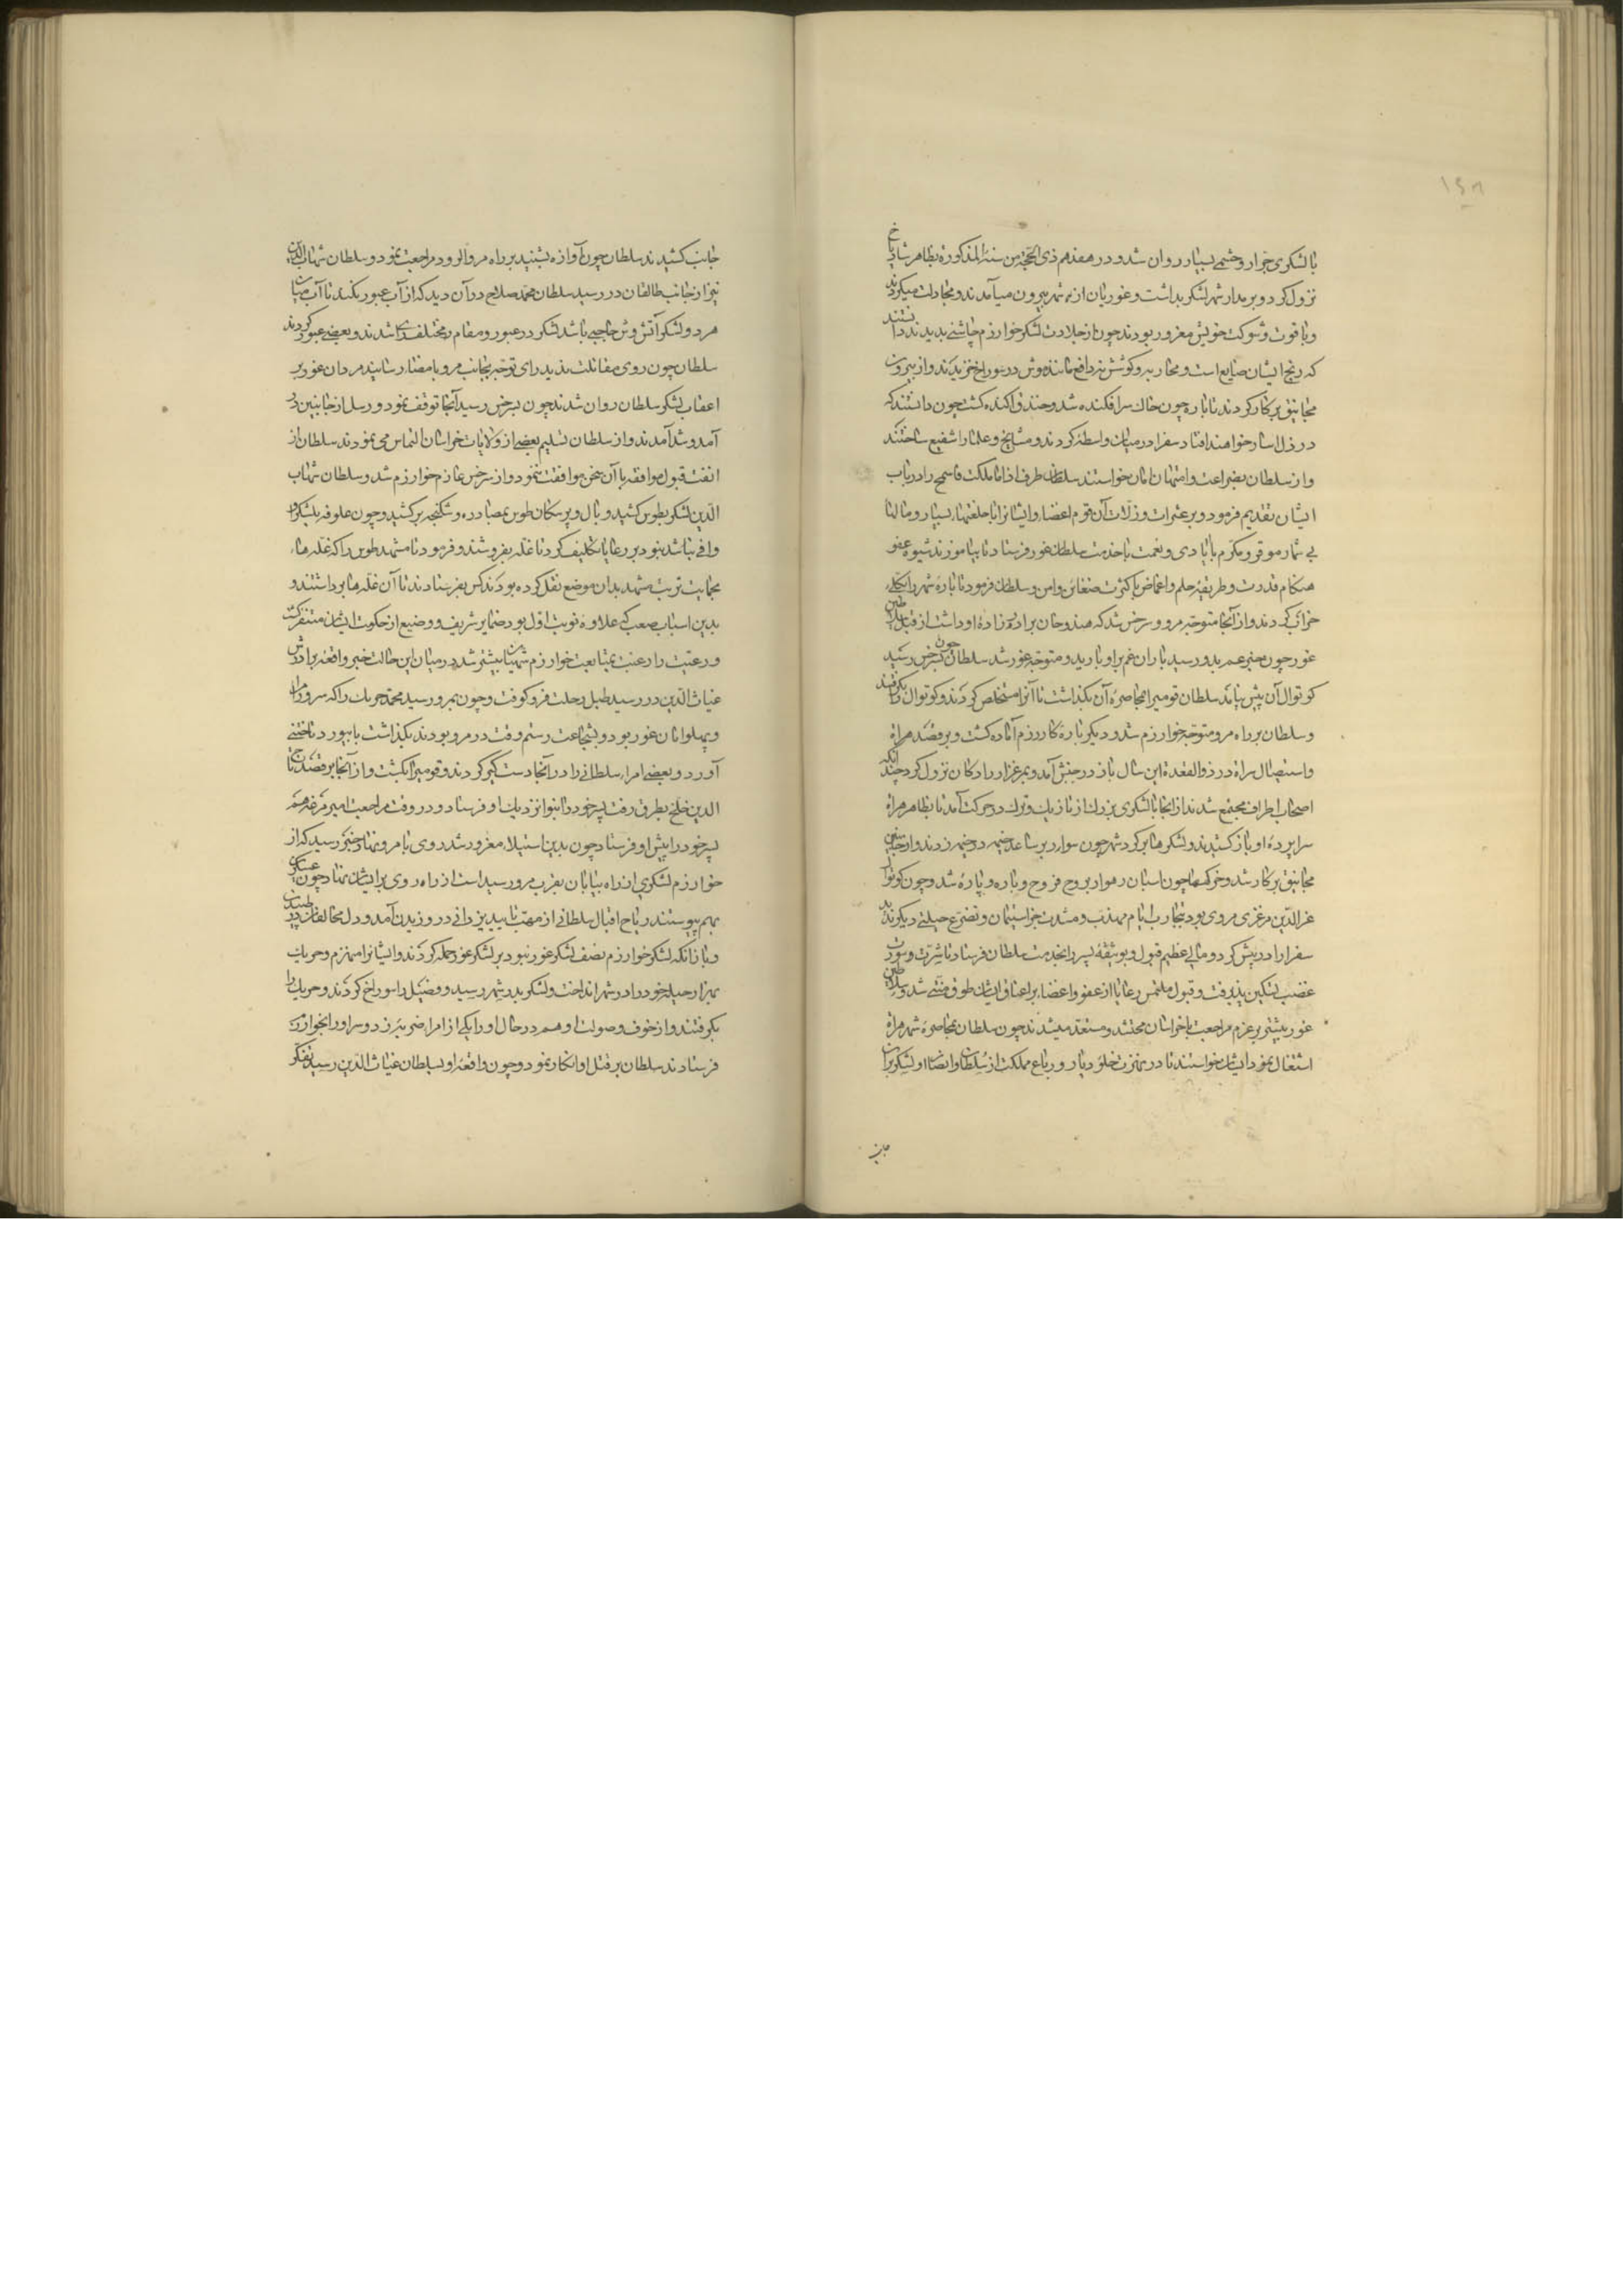 با لشکری جرار و حشمی بسیار روان شد و در هفدهم ذی الحجة من سنة المذکورة بظاهر شادیاخ
نزول کرد و بر مدار شهر لشکر بداشت و غوریان از شهر بیرون میآمدند و مجادلت میکردند
و با قوت و شوکت خویش مغرور بودند چون از جلادت لشکر خوارزم چاشنی بدیدند دانستند
که رنج ایشان ضایع است و محاربه و کوشش نه دافع مانند موش در سوراخ خزیدند و از بیرون
مجانیق بر کار کردند تا باره چون خاک سرافکنده شد و خندق آکنده گشت چون دانستند که
در ذل اسار خواهند افتاد سفرا در میان واسطه کردند و مشایخ و علما را شفیع ساختند
و از سلطان بضراعت و امتهان امان خواستند سلطان طرف اذا ملکت فاسجح را در باب
ایشان تقدیم فرمود و بر عثرات و زلات آن قوم اغضا و ایشانرا با خلعتهاء بسیار و مالها
بی شمار موقر و مکرم با ایادی و نعمت با خدمت سلطان غور فرستاد تا بیاموزند شیوه عفو
هنگام قدرت و طریقه حلم و اغماض با کثرت ضغاین و امن و سلطان فرمود تا باره شهر را بکلی
خراب کردند و از آنجا متوجه مرو و سرخس شد که هندوخان برادرزاده او داشت از قبل سلاطین
غور چون خبر عم بدو رسید باران غم بر او بارید و متوجه غور شد سلطان چون بسرخس رسید
کوتوال آن پیش نیامد سلطان قومی را بمحاصره آن بگذاشت تا آنرا مستخلص کردند و کوتوال را بگرفتند
و سلطان بر راه مرو متوجه خوارزم شد و دیگر باره کار رزم آماده گشت و بر قصد هراة
و استیصال سراة در ذوالقعدة این سال باز در جنبش آمد و بمرغزار رادکان نزول کرد چندانکه
اصحاب اطراف مجتمع شدند از آنجا با لشکری بزرک از تازیک و ترک در حرکت آمد تا بظاهر هراة
سراپرده او باز کشیدند و لشکرها بر گرد شهر چون سوار بر ساعد خیمه در خیمه زدند و از جانبین
مجانیق بر کار شد و خرکسها چون اسبان رهوار بروج فروج و باره پاره شد و چون کوتوال
عزالدین مرغزی مردی بود بتجارب ایام مهذب و مشذب جز استیمان و تضرع حیلتی دیگر ندید
سفرا را در پیش کرد و مالی عظیم قبول و بوثیقه پسر را بخدمت سلطان فرستاد تا شرت و سورت
غضب تسکین پذیرفت و قبول ملتمس رعایا از عفو و اغضاء بر اعناق ایشان طوق منتی شد و سلاطین
غور بیشتر بر عزم مراجعت با خراسان محتشد و مستعد میشدند چون سلطان بمحاصره شهر هراة
اشتغال نمود ایشان خواستند تا در نهزت خلو دیار و رباع مملکت از سلطان و انصار او لشکر بدان
جانب
جانب کشیدند سلطان چون آوازه بشنید بر راه مروالرود مراجعت نمود و سلطان شهاب الدین
نیز از جانب طالقان در رسید سلطان محمد صلاح در آن دید که از آب عبور نکند تا آب میان
هر دو لشکر آتش وش حاجبی باشد لشکر در عبور و مقام مختلف رای شدند و بعضی عبور کردند
سلطان چون روی مقاتلت ندید رای توجه بجانب مرو با مضاء رسانید مردان غور بر
اعقاب لشکر سلطان روان شدند چون بسرخس رسید آنجا توقف نمود و رسل از جانبین در
آمدوشد آمدند و از سلطان تسلیم بعضی از ولایات خراسان التماس می نمودند سلطان از
انفت قبول موافقه با آن سخن موافقت ننمود و از سرخس عازم خوارزم شد و سلطان شهاب
الدین لشکر بطوس کشید و بال و پر سکان طوس بمصادره و شکنجه برکشید و چون علوفه لشکر او
وافی نبا شد بنود بر رعایا تکلیف کرد تا غله بفروشند و فرمود تا مشهد طوس را که غله هاء
بحمایت تربت مشهد بدان موضع نقل کرده بودند کس بفرستادند تا آن غله ها برداشتند و
بدین اسباب صعب که علاوه نوبت اول بود ضمایر شریف و وضیع از حکومت ایشان متنفر گشت
و رعیت را رغبت بمتابعت خوارزم شهیان بیشتر شد در میان این حالت خبر واقعه برادرش
غیاث الدین در رسید طبل رحلت فرو کوفت و چون بمرو رسید محمد خربک را که سرور مردان
و پهلوانان غور بود و بشجاعت رستم وقت در مرو بودند بگذاشت بابیورد تاختنی
آورد و بعضی امراء سلطانی را در آنجا دست گیر کردند و قومی را بکشت و از آنجا بر قصد تاج
الدین خلج بطرق رفت پسر خود را بنوا نزدیک او فرستاد و در وقت مراجعت امیر مرغه هم
پسر خود را پیش او فرستاد چون بدین استیلاء مغرور شد روی با مرو نهاد خبر رسید که از
خوارزم لشکری از راه بیابان بقرب مرو رسید است از راه روی بر ایشان نهاد چون عساکر
بهم پیوستند ریاح اقبال سلطانی از مهب تایید یزدانی در وزیدن آمد و دل مخالفان در طپیدن
و با زانکه لشکر خوارزم نصف لشکر غور نبود بر لشکر غور حمله کردند و ایشانرا منهزم و خربک
بهزار حیله خود را در شهر انداخت و لشکر بدر شهر رسید و فصیل را سوراخ کردند و خربک را
بگرفتند و از خوف و صولت او هم در حال او را یکی از امرا ضربه زد و سر او را بخوارزم
فرستادند سلطان بر قتل او انکار نمود و چون واقعه او بسلطان غیاث الدین رسید تفکر